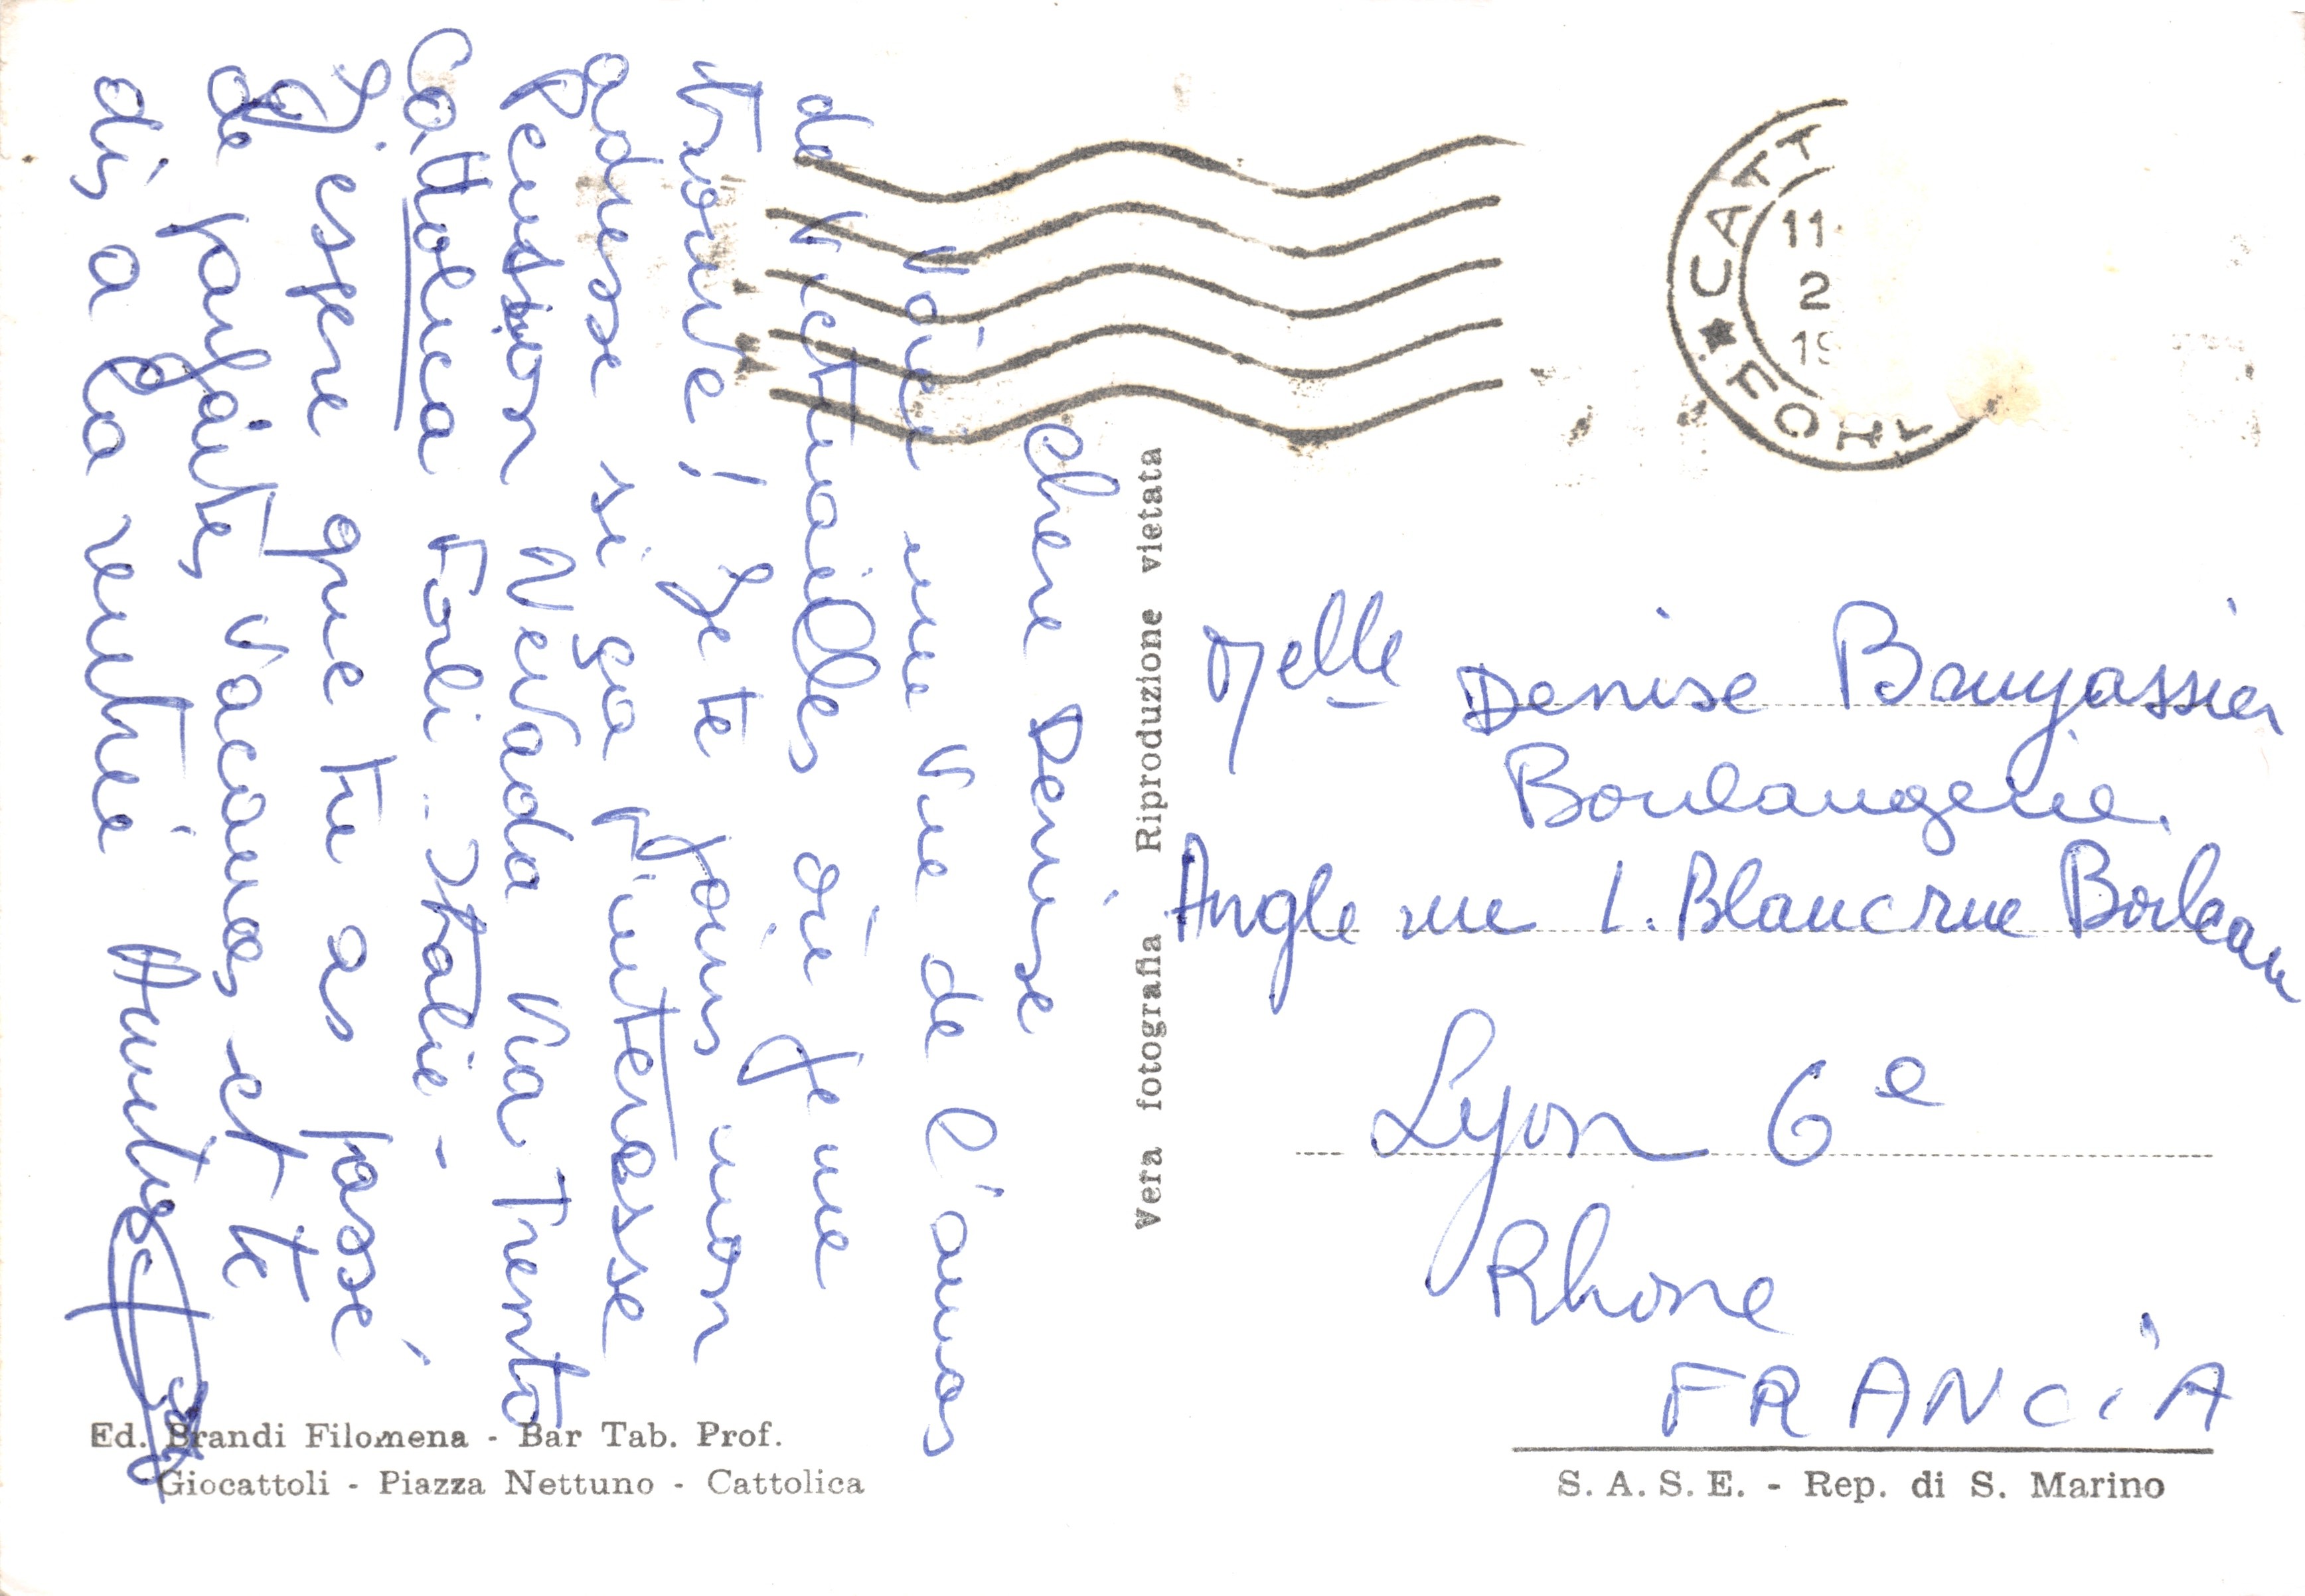 chère Denise
Voici une vue de l'amas
de victuailles où je me
trouve ! Je te joins mon
adresse si ça t'intéresse
Pension Nevada Via Trento
Cattolica Forli .. Italie -
J'espère que tu as passé
de parfaites vacances et te
dis à la rentrée Amitiés
Melle Denise Bruyassier
Boulangerie
Angle rue L. Blanc rue Boileau
Lyon 6e
Rhone
FRANCiA
Vera fotografia Riproduzione vietata
Ed. Brandi Filomena - Bar Tab. Prof.
Giocattoli - Piazza Nettuno - Cattolica
S. A. S. E. - Rep. di S. Marino
CATT
11.
2